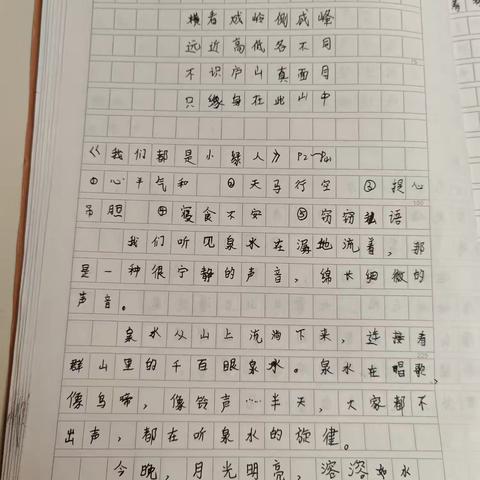 横看成岭侧成峰
远近高低各不同
不识庐山真面目
只缘身在此山中
《我们都是小绿人》P2—P21
①心平气和 ②天马行空 ③提心
吊胆 ④寝食不安 ⑤窃窃独语
我们听见泉水在潺地流着，那
是一种很宁静的声音，绵长细微的
声音。
泉水从山上流淌下来，连接着
群山里的千百眼泉水。泉水在唱歌、
像鸟啼，像铃声……半天，大家都不
出声，都在听泉水的旋律。
今晚，月光明亮，溶溶如水